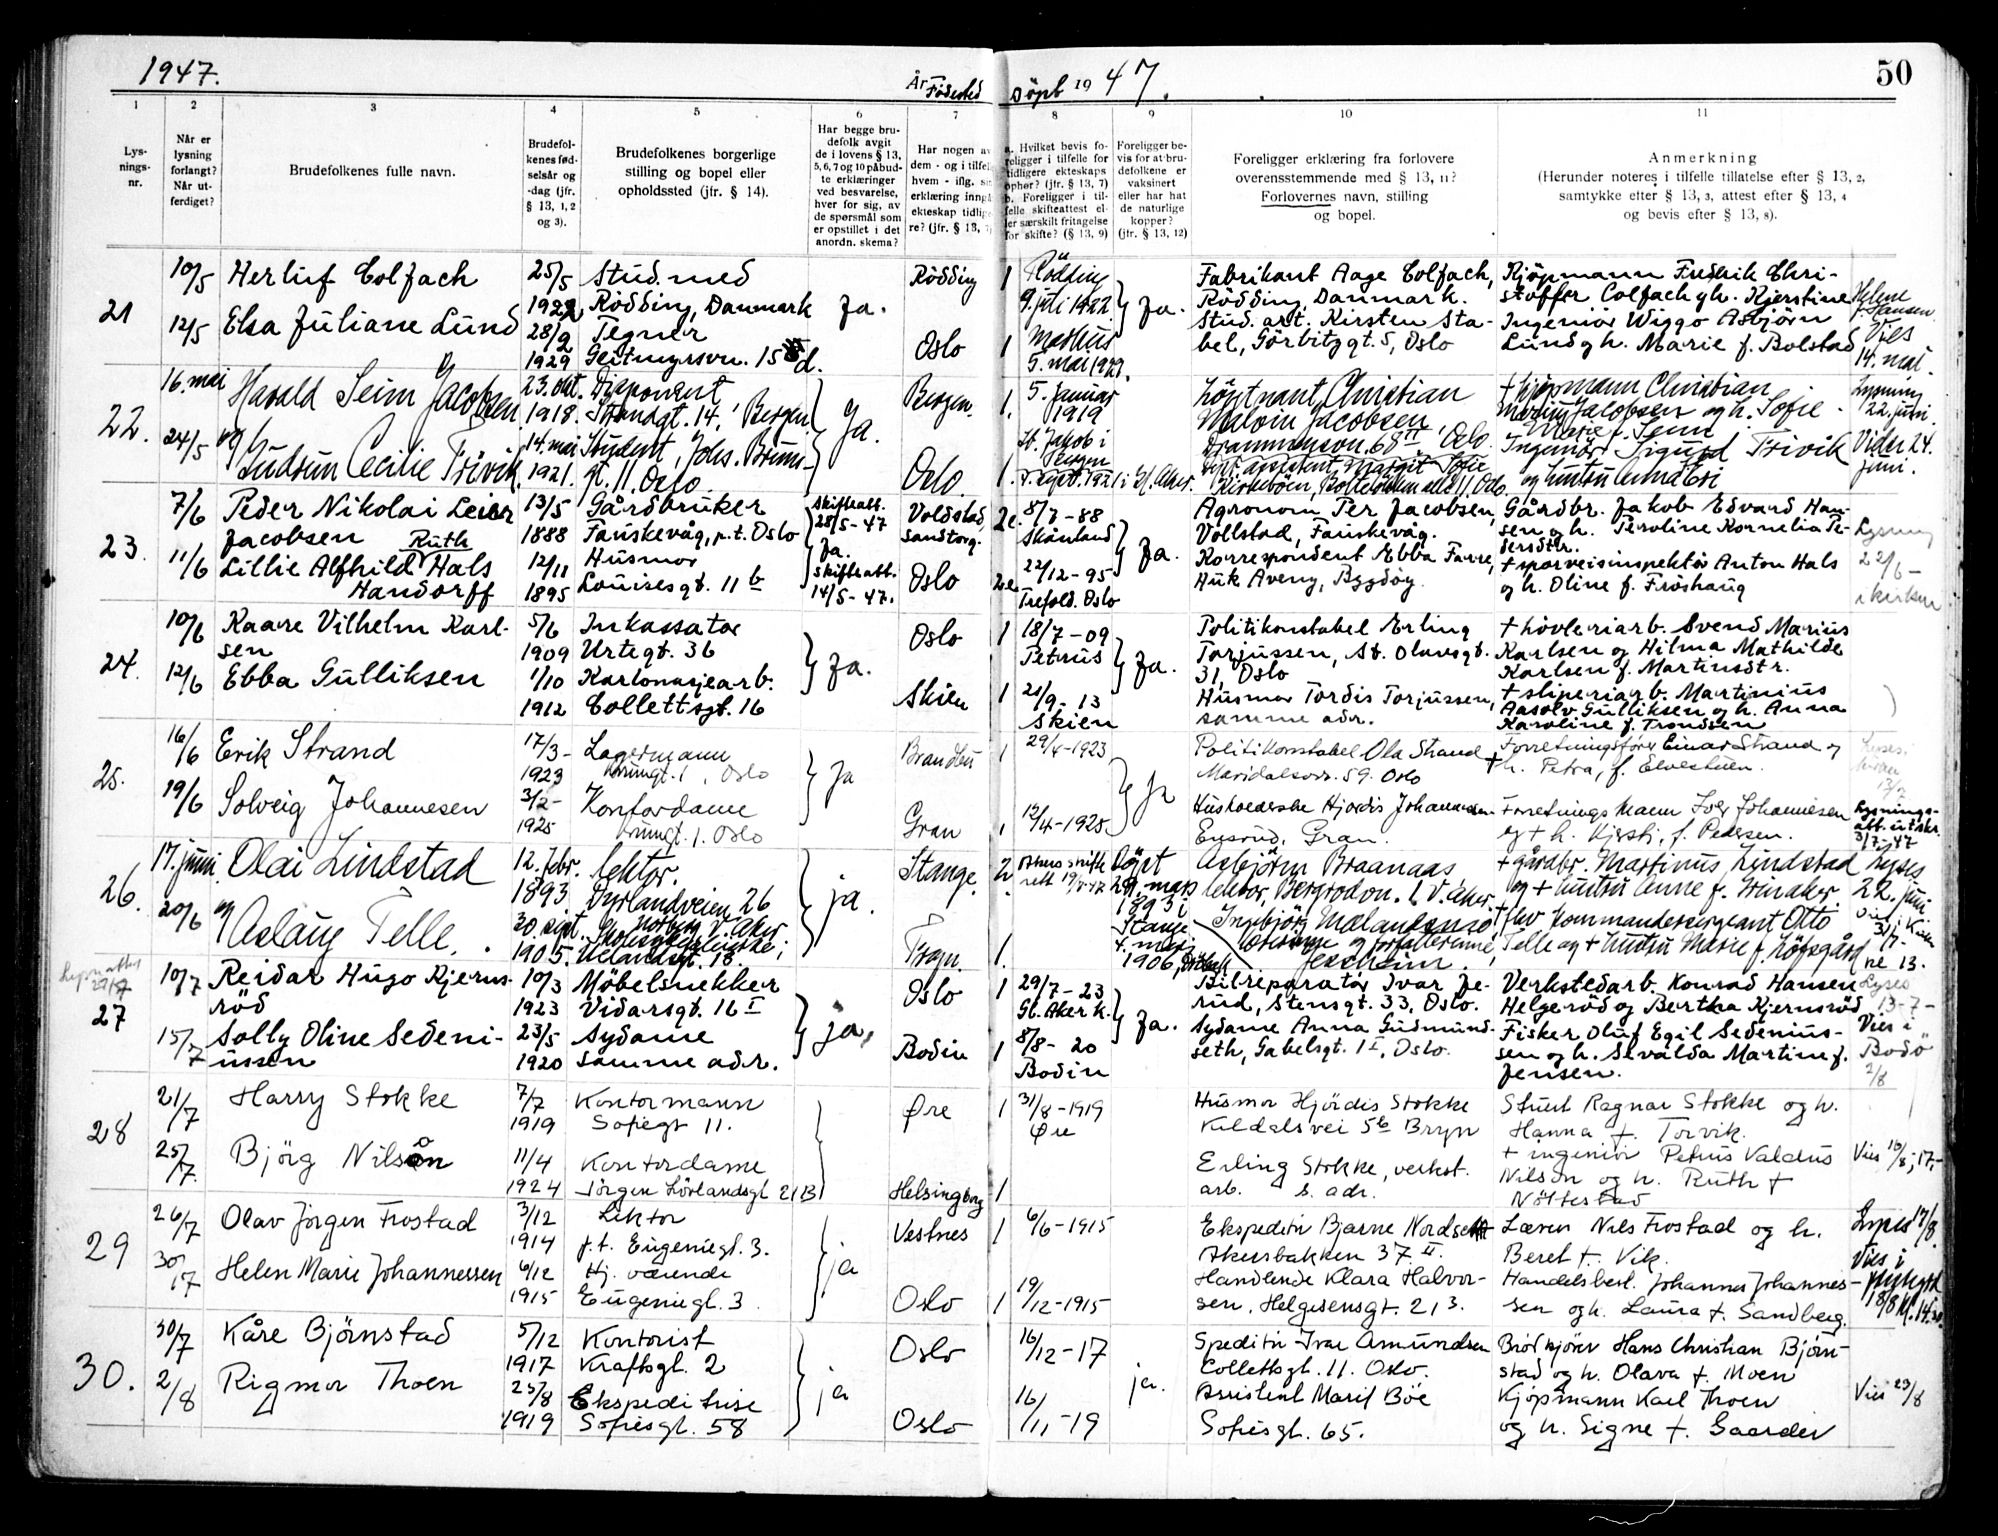 1947.
År Fødested
Döpt 19 47.
50
1
2
3
4
5
6
7
8
9
10
11
Lys-
nings-
nr.
Når er
lysning
forlangt?
Når ut-
ferdiget?
Brudefolkenes fulle navn.
Brudefol-
kenes fød-
selsår og
-dag (jfr.
§ 13, 1, 2
og 3).
Brudefolkenes borgerlige
stilling og bopel eller
opholdssted (jfr. § 14).
Har begge bru-
defolk avgit
de i lovens § 13,
5, 6, 7 og 10 påbud-
te erklæringer
ved besvarelse,
hver for sig, av
de spørsmål som
er opstillet i det
anordn. skema?
Har nogen av
dem - og i tilfel
hvem - iflg. si
erklæring inngå
ekteskap tidlige
re? (jfr. § 13, 7)
a. Hvilket bevis fo-
religger i tilfelle for
tidligere ekteskaps
ophør? (jfr. § 13, 7)
b. Foreligger i til-
felle skifteattest el-
ler særskilt fritagelse
for skifte? (§ 13, 9)
Foreligger be-
vis for at bru-
defolkene er
vaksinert
eller har hat
de naturlige
kopper?
(jfr. § 13, 12)
Foreligger erklæring fra forlovere
overensstemmende med § 13, 11?
Forlovernes navn, stilling
og bopel.
Anmerkning
(Herunder noteres i tilfelle tillatelse efter § 13, 2,
samtykke efter § 13, 3, attest efter § 13, 4
og bevis efter § 13, 8).
21
10/5
12/5
Herluf Colfach
Elsa Juliane Lund
25/5
1922
28/2
1929
Stud. med
Rödding, Danmark
Tegner
Geitmyrsvn. 15 d.
Ja.
Rödding
Oslo
1
1
Rödding
9. juli 1922
Markus
5. mai 1929.
Ja.
Fabrikant Aage Colfach,
Rödding, Danmark.
Stud. art. Kirsten Sta-
bel, Görbitzgt. 5, Oslo
Kjøpmann Fredrik Chri-
stoffer Colfach g h. Kjerstine
Ingeniör Wiggo Asbjörn
Lund g h. Marie f. Bolstad
Helene
f. Hansen
Vies
14. mai.
22.
16. mai
24/5
Harald Seim Jacobsen
og
Gudrun Cecilie Trivik
23. okt.
1918.
14. mai
1921.
Disponent
Strandgt. 14, Bergen
Student, Johs. Bruns-
gt. 11. Oslo.
Ja.
Bergen.
Oslo.
1.
1.
5. Januar
1919
St. Jakob i
Bergen
4. sept. 1921 i V. Aker.
Löytnant, Christian
Malvin Jacobsen
Drammensvn. 68 II, Oslo
assistent, Margit Sofie
+ kjøpmann Christian
Jacobsen og h. Sofie
Marie f. Seim
Ingeniör Sigurd Trivik
og hustru
Lysning
22. juni.
Vider 24.
juni.
23.
7/6
11/6
Peder Nikolai Leier
Jacobsen
Ruth
Lillie Alfhild Hals
Handorff
13/5
1888
12/11
1895
Gårdbruker
Fauskevåg, p.t. Oslo
Husmor
Louisesgt. 11 b
Skifteatt.
28/5-47
Ja.
Skifteatt.
14/5-47.
Voldstad
Sandtorg.
Oslo
2e.
2e.
8/7-88
Skånland
22/12-95
Trefold. Oslo
Ja.
Agronom Per Jacobsen,
Vollstad, Fauskevåg.
Korrespondent Ebba Farre,
Huk Aveny, Bygdøy.
Gårdbr. Jakob Edvard Han-
sen og h. Peroline Kornelia Pe-
dersdtr.
+ sporveisinspektör Anton Hals
og h. Oline f. Fröshaug
Lysning
22/6 -
i kirken
24.
10/6
12/6
Kaare Vilhelm Karl-
sen
Ebba Gulliksen
5/6
1909
1/10
1912
Inkassator
Urtegt. 36
Kartonasjearb.
Collettsgt. 16
Ja.
Oslo
Skien
1
1
18/7-09
Petrus
21/9-13
Skien
Ja.
Politikonstabel Erling
Torjussen, St. Olavsgt.
31, Oslo
Husmor Tordis Torjussen,
samme adr.
+ høvleriarb. Svend Marius
Karlsen og Hilma Mathilde
Karlsen f. Martinsdtr.
+ sliperiarb. Martinius
Aasolv Gulliksen og h. Anna
Karoline f. Trondsen
25.
16/6
19/6
Erik Strand
Solveig Johannesen
17/3-
1923
3/2-
1925
Lagermann
Irmingt. 1, Oslo
Konfordame
Irmingt. 1. Oslo
Ja
Brandbu
Gran
1
1
29/4-1923
12/4-1925.
Ja
Politikonstabel Ola Strand
Maridalsvn. 59. Oslo
Husholderske Hjördis Johannesen
Ensrud, Gran.
Forretningsfører Einar Strand og
+ h. Petra, f. Elvestuen.
Forretningsmann Iver Johannesen
og + h. Kjersti, f. Pedersen.
Lysnings-
att. utskr.
3/7-47
26.
17. juni
20/6
Olai Lindstad
og
Aslaug Telle.
12. febr.
1893
30. sept.
1905.
lektor.
Dyrlandveien 26
Nordberg V. Aker
ja.
Stange.
Trøgn.
2
1.
Döpt
29. mars
1893 i
Stange
4. mars
1906,
Asbjörn Braanaas
lektor, Bergrodvn. 1. V. Aker.
Ingebjörg Mælandsmo
og forfatterinne,
Jessheim.
+ gårdbr. Martinus Lindstad
og + hustru Anne f. Stuaker.
+ flv Kommandersergeant Otto
Telle og + hustru Marie f. Löfsgård
Lyses
22. juni
Vies i Kirken
31/7-
kl 13.
27
10/7
15/7
Reidar Hugo Kjerns-
röd
Solly Oline Sedeni-
ussen
10/3
1923
23/5
1920
Möbelsnekker
Vidarsgt. 16 I
Sydame
samme adr.
ja,
Oslo
Bodin
1
1
29/7-23
Gl. Aker k.
8/8-20
Bodin
Ja.
Bilreparatör Ivar Je-
rud, Stensgt. 33, Oslo.
Sydame Anna Gudmund-
seth, Gabelsgt. 1 I, Oslo.
Verkstedarb. Konrad Hansen
Helgeröd og Bertha Kjernsröd
Fisker Oluf Egil Sedenius-
sen og h. Sevalda Martine f.
Jensen.
Lyses
13-7-
Vies i
Bodö
2/8
28
21/7
25/7.
Harry Stokke
Bjørg Nilson
7/7
1919
11/4
1924
Kontormann
Sofiegt 11.
Kontordame
Jörgen Lövlandsgt 21 B
Øre
Helsingborg
1
1
31/8-1919
Øre
Husmor Hjördis Stokke
Kildalsvei 5b Bryn
Erling Stokke, verkst.
arb. s. adr.
Stuert Ragnar Stokke og h.
Hanna f. Torvik.
+ ingeniör Petrus Valdus
Nilson og h. Ruth f
Nöltestad
Vies 16/8, 17,-
29
26/7
30/7
Olav Jörgen Frostad
Helen Marie Johannessen
3/12
1914
6/12
1915
Lektor
p.t. Eugeniegt. 3.
Hj. værende
Eugeniegt. 3
ja
Vestnes
Oslo
1
1
6/6-1915
19/12-1915
Ekspeditör Bjarne Nordsett
Akersbakken 37 II.
Handlende Klara Halvor-
sen, Helgesensgt. 21 3.
Lærer Nils Frostad og h.
Beret f. Vik.
Handelsbest. Johannes Johannes-
sen og h. Laura f. Sandberg.
Lyses 17/8.
Vies i
18/8 kl. 14.30.
30.
30/7
2/8
Kåre Bjørnstad
Rigmor Thoen
5/12
1917
25/8
1919
Kontorist
Kraftsgt. 2
Ekspeditrise
Sofiesgt. 58
ja
Oslo
Oslo
16/12-17
16/11-19
ja.
Speditör Ivar Amundsen
Collettsgt. 11. Oslo.
Assistent Marit Bøe
Sofiesgt. 65.
Brødkjører Hans Christian Bjørn-
stad og h. Olava f. Moen
Kjöpmann Karl Thoen
og h. Signe f. Gaarder
Vies 23/8